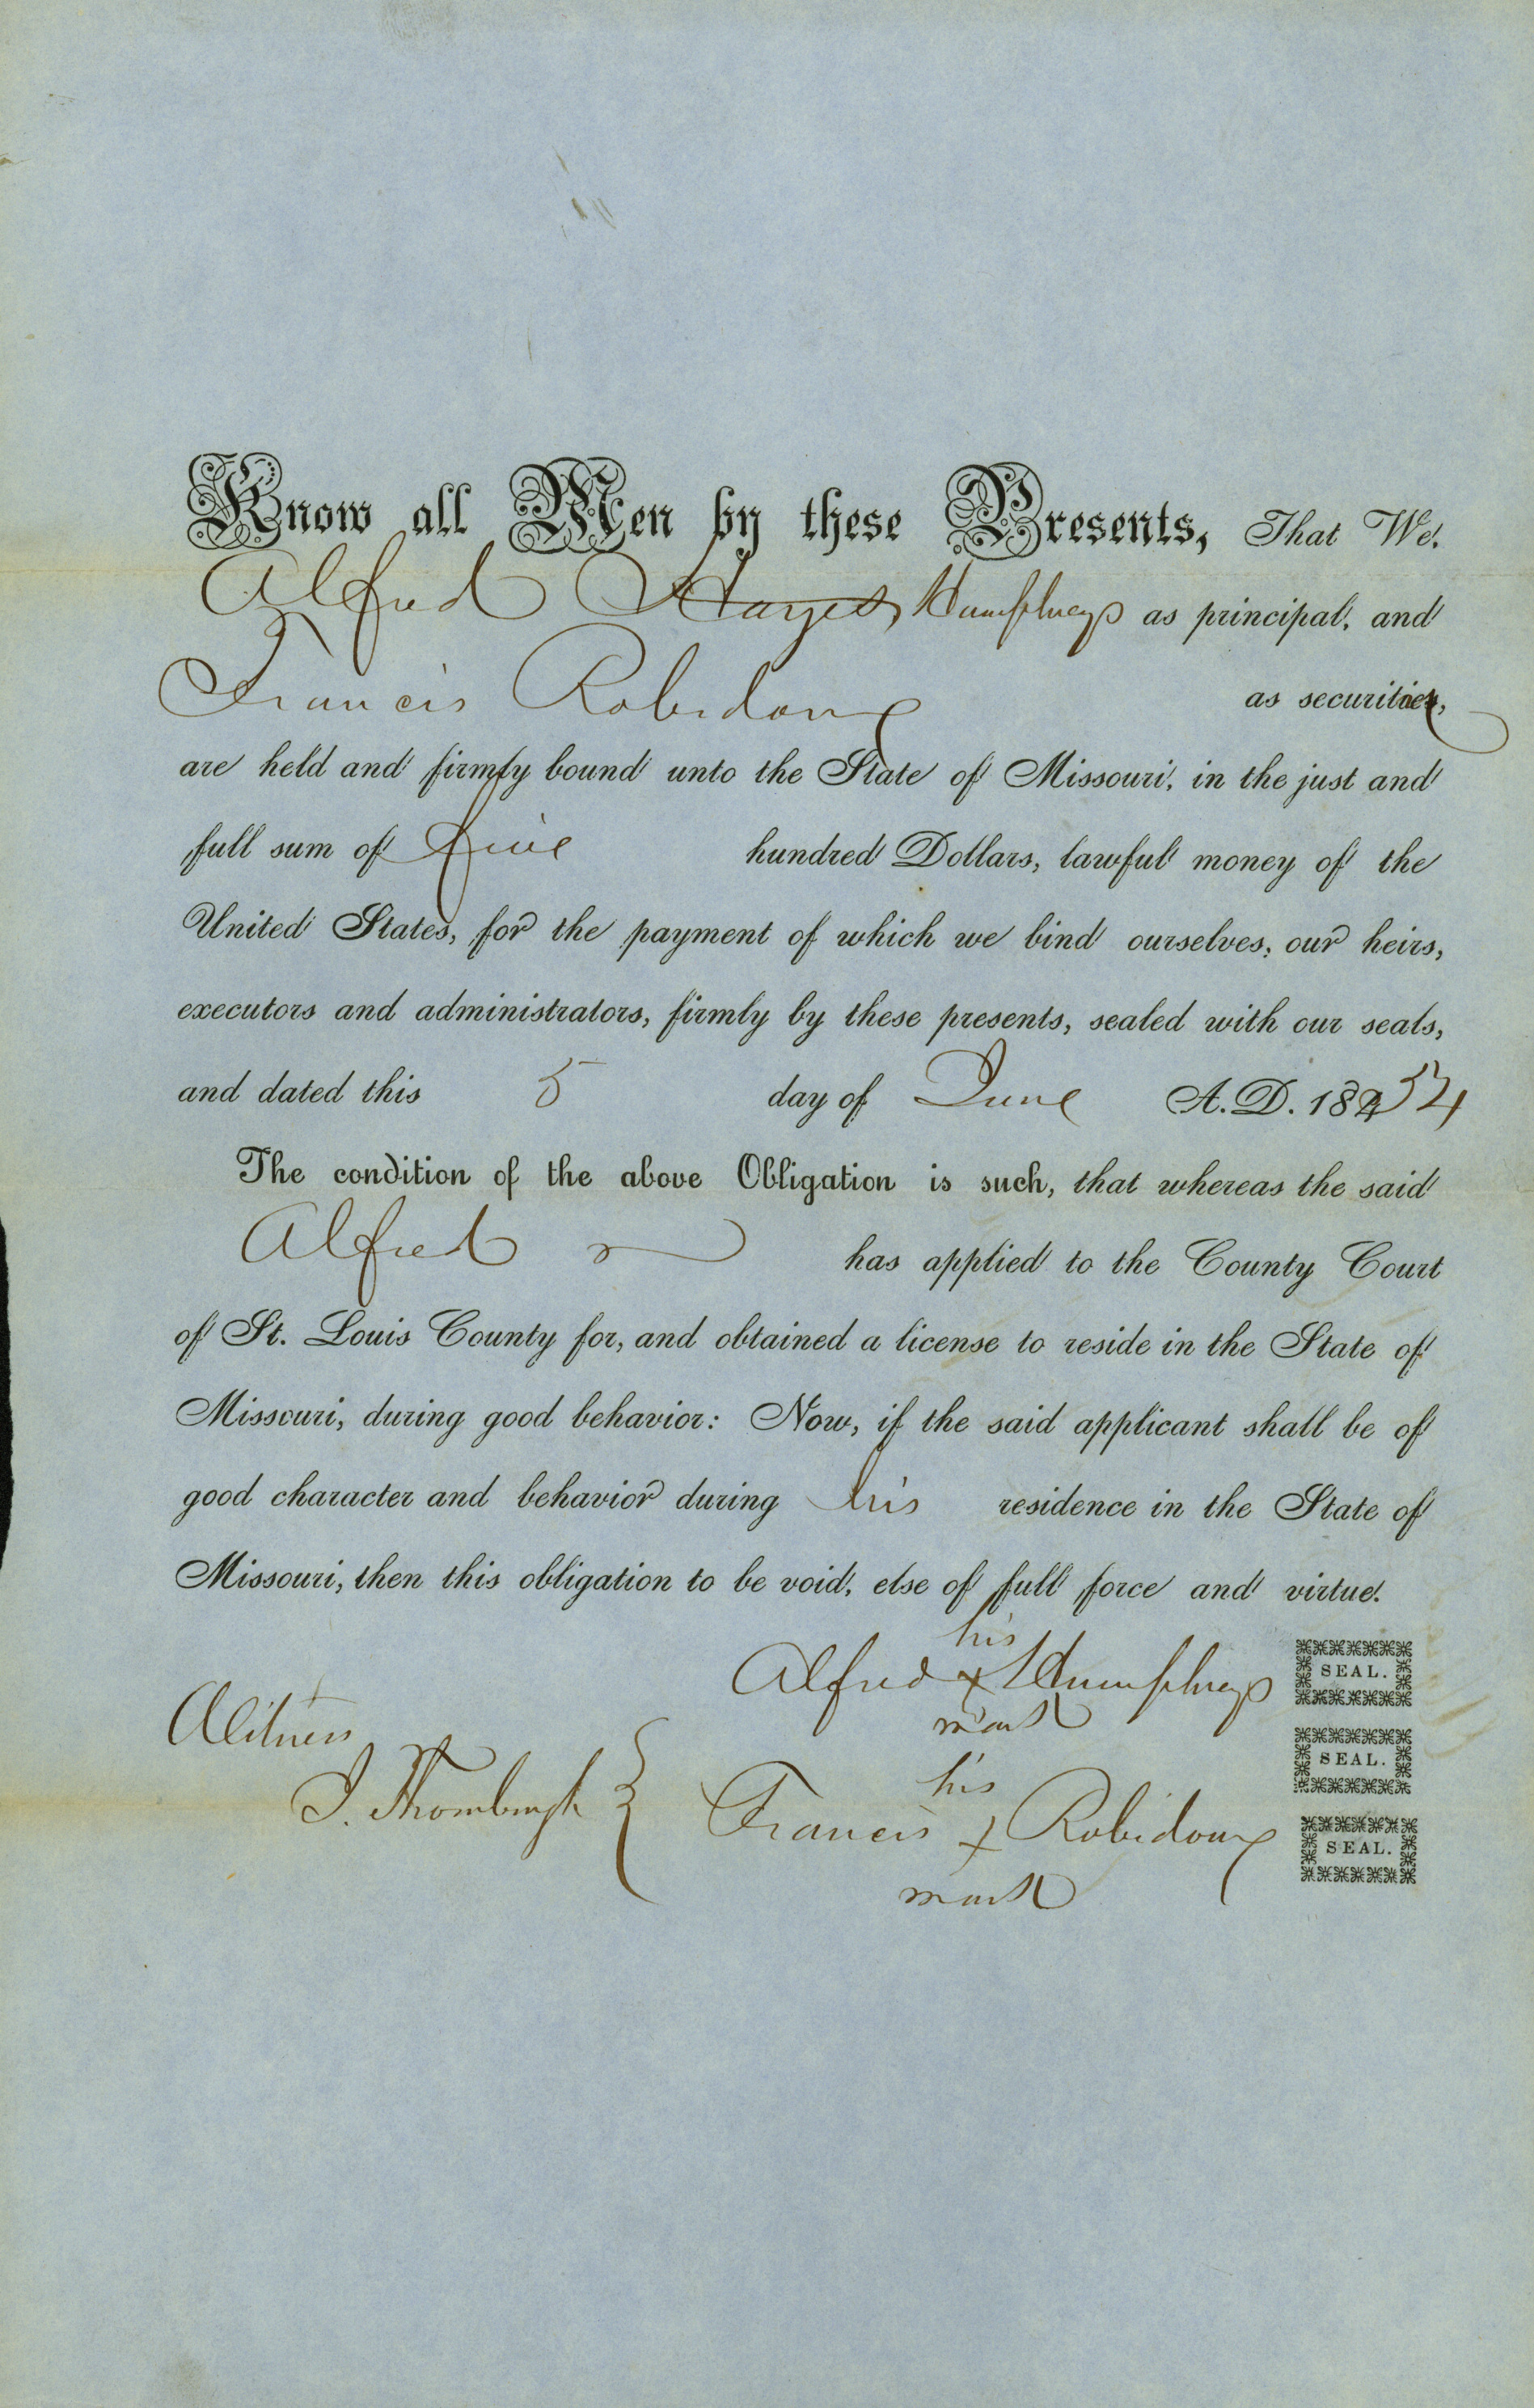 Know all Men by these Presents, That We,
Alfred Hayes Humphreys as principal, and
Francis Robidoux as securities,
are held and firmly bound unto the State of Missouri, in the just and
full sum of five hundred Dollars, lawful money of the
United States, for the payment of which we bind ourselves, our heirs,
executors and administrators, firmly by these presents, sealed with our seals,
and dated this 5 day of June A. D. 18454
The condition of the above Obligation is such, that whereas the said
Alfred has applied to the County Court
of St. Louis County for, and obtained a license to reside in the State of
Missouri, during good behavior: Now, if the said applicant shall be of
good character and behavior during his residence in the State of
Missouri, then this obligation to be void, else of full force and virtue.
his
Alfred x Humphreys SEAL.
mark
Witness
SEAL.
his
J. Thornburgh Francis x Robidoux SEAL.
mark